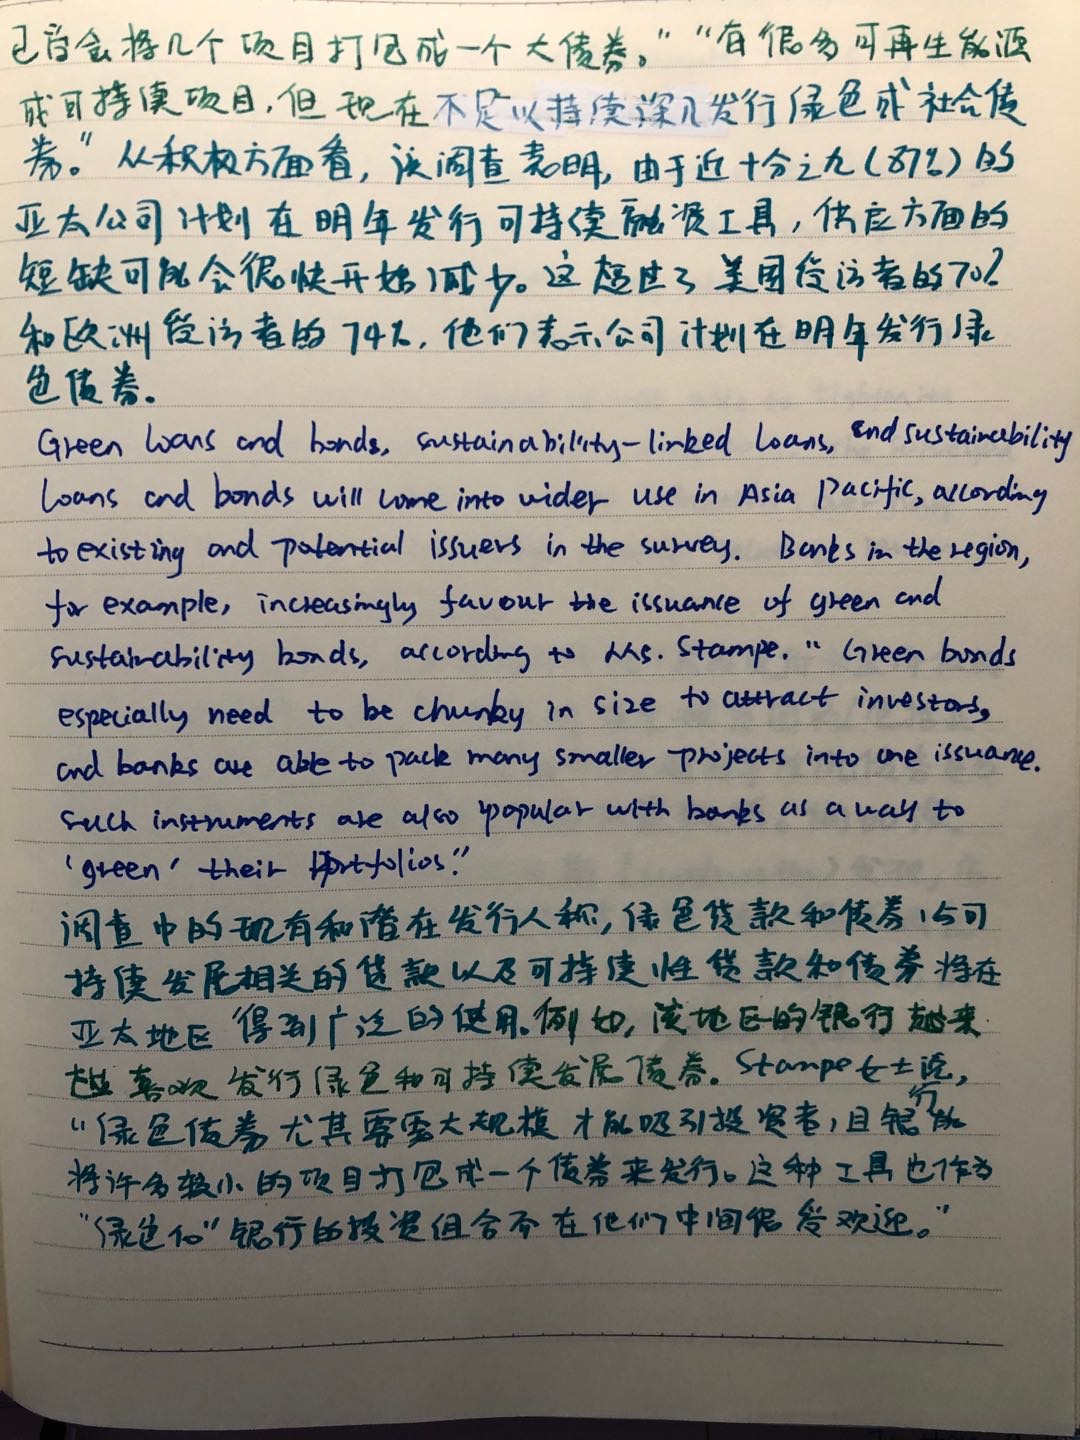 会将几个项目打包成一个大债券。”“有很多可再生能源
或可持续项目，但现在不足以持续深入发行绿色或社会债
券。”从积极方面看，该调查表明，由于近十分之九（87%）的
亚太公司计划在明年发行可持续融资工具，供应方面的
短缺可能会很快开始减少。这超过了美国受访者的70%
和欧洲受访者的74%，他们表示公司计划在明年发行绿
色债券。
Green loans and bonds, sustainability-linked loans, and sustainability
loans and bonds will come into wider use in Asia Pacific, according
to existing and potential issuers in the survey. Banks in the region,
for example, increasingly favour the issuance of green and
sustainability bonds, according to Ms. Stampe. “Green bonds
especially need to be chunky in size to attract investors,
and banks are able to pack many smaller projects into one issuance.
Such instruments are also popular with banks as a way to
‘green’ their portfolios.”
调查中的现有和潜在发行人称，绿色贷款和债券、与可
持续发展相关的贷款以及可持续性贷款和债券将在
亚太地区得到广泛的使用。例如，该地区的银行越来
越喜欢发行绿色和可持续发展债券。Stampe女士说，
“绿色债券尤其需要大规模才能吸引投资者，且银行能
将许多较小的项目打包成一个债券来发行。这种工具也作为
“绿色化”银行的投资组合而在他们中间很受欢迎。”